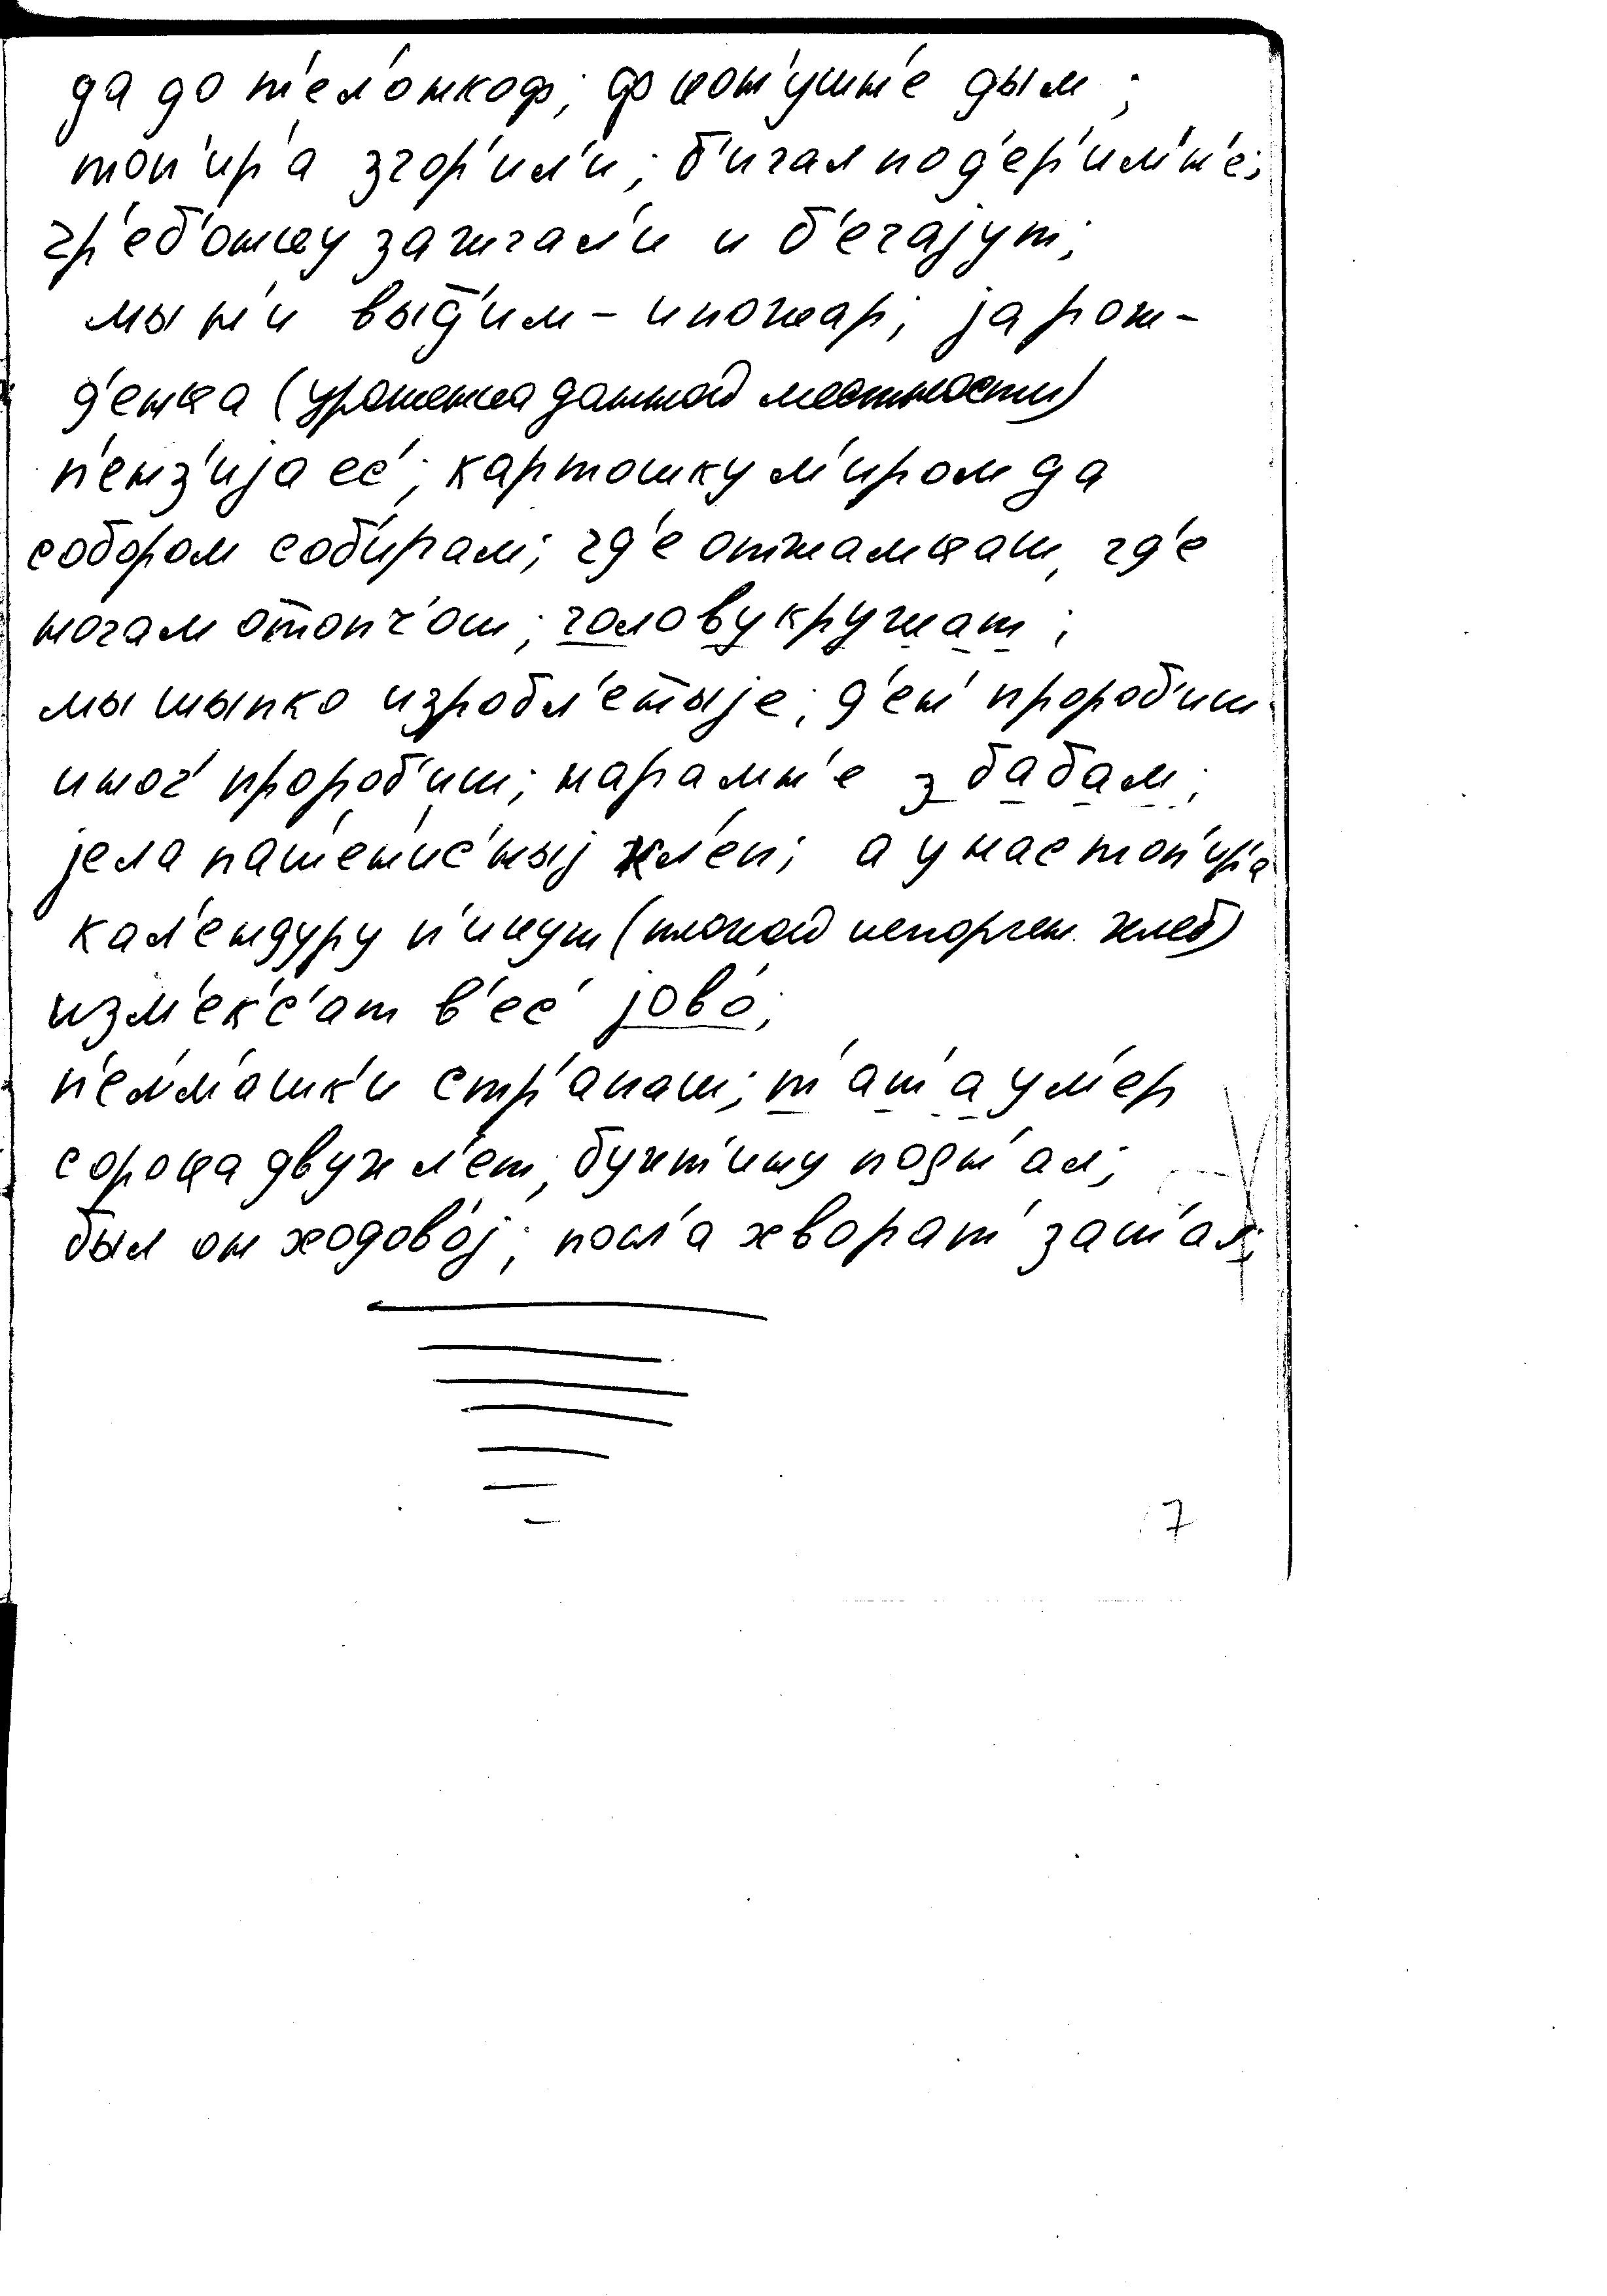 да до т'ел'онкоф; ф цот'ушн'е дым;
топ'ир'а згор'ил'и; б'игал по д'ер'им'н'е;
гр'еб'онцу зажгал'и и б'егаjут;
мы н'и выд̅'им – и пожар; jа рож-
д'енца (уроженка данной местности)
п'енз'иjа ес'; картошку м'иром да
собором соб'ирам; гд'е отжамцаш, гд'е
ногам от̅опч'ош; голову кружат;
мы шыпко изробл'ет̅ыjе; д'ен' пророб'иш
и ноч' пророб'иш; нарамн'е з бабам;
jела паш'ен'ис'ныj хл'еп; а у нас топ'ир'а
кал'ендуру п'икут (плохой испорчен. хлеб)
изм'ек'с'ат в'ес' jово́;
п'ел'м'ошк'и стр'апаш; т'ат'а ум'ер
сорока двух л'ет; бухт'ину подн'ал;
был он ходово́j; посл'а хворат' зач'ал;
7